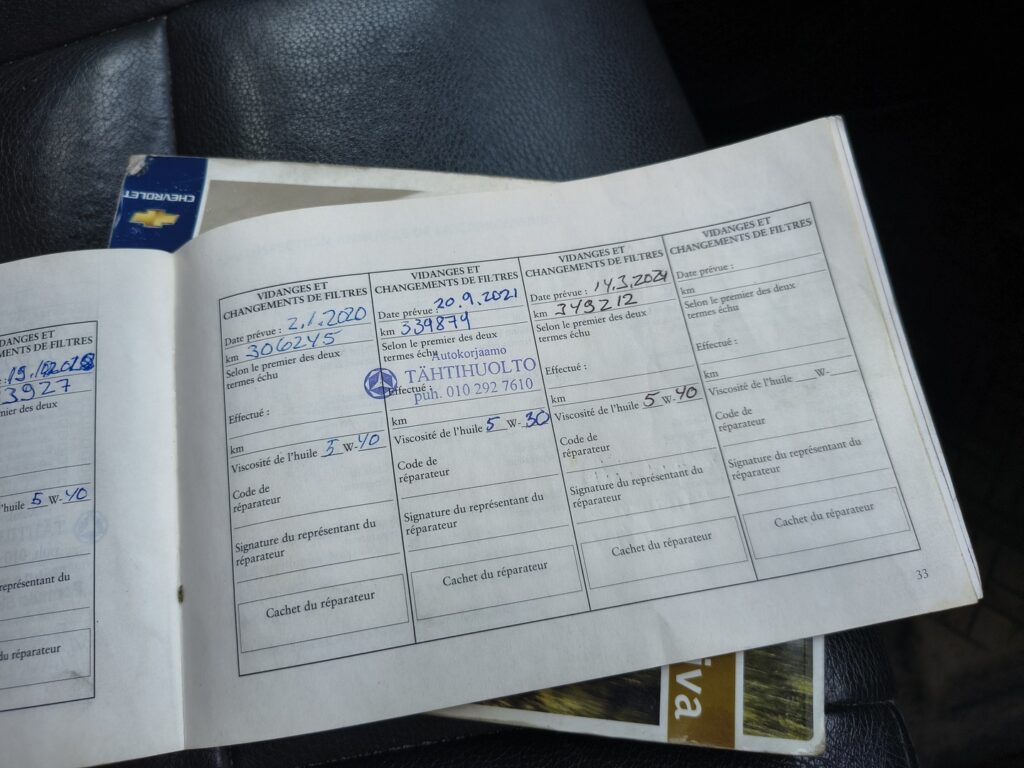 CHEVROLET
VIDANGES ET
CHANGEMENTS DE FILTRES
Date prévue : 2.1.2020
km 306245
Selon le premier des deux
termes échu
Effectué :
km
Viscosité de l'huile 5 W-40
Code de
réparateur
Signature du représentant du
réparateur
Cachet du réparateur
VIDANGES ET
CHANGEMENTS DE FILTRES
Date prévue : 20.9.2021
km 339879
Selon le premier des deux
termes échu
Autokorjaamo
TÄHTIHUOLTO
Effectué :
puh. 010 292 7610
km
Viscosité de l'huile 5 W-30
Code de
réparateur
Signature du représentant du
réparateur
Cachet du réparateur
VIDANGES ET
CHANGEMENTS DE FILTRES
Date prévue : 14.3.2024
km 349212
Selon le premier des deux
termes échu
Effectué :
km
Viscosité de l'huile 5 W-40
Code de
réparateur
Signature du représentant du
réparateur
Cachet du réparateur
VIDANGES ET
CHANGEMENTS DE FILTRES
Date prévue :
km
Selon le premier des deux
termes échu
Effectué :
km
Viscosité de l'huile W-
Code de
réparateur
Signature du représentant du
réparateur
Cachet du réparateur
33
DANGES ET
EMENTS DE FILTRES
3927
mier des deux
l'huile 5 W-40
représentant du
du réparateur
iva